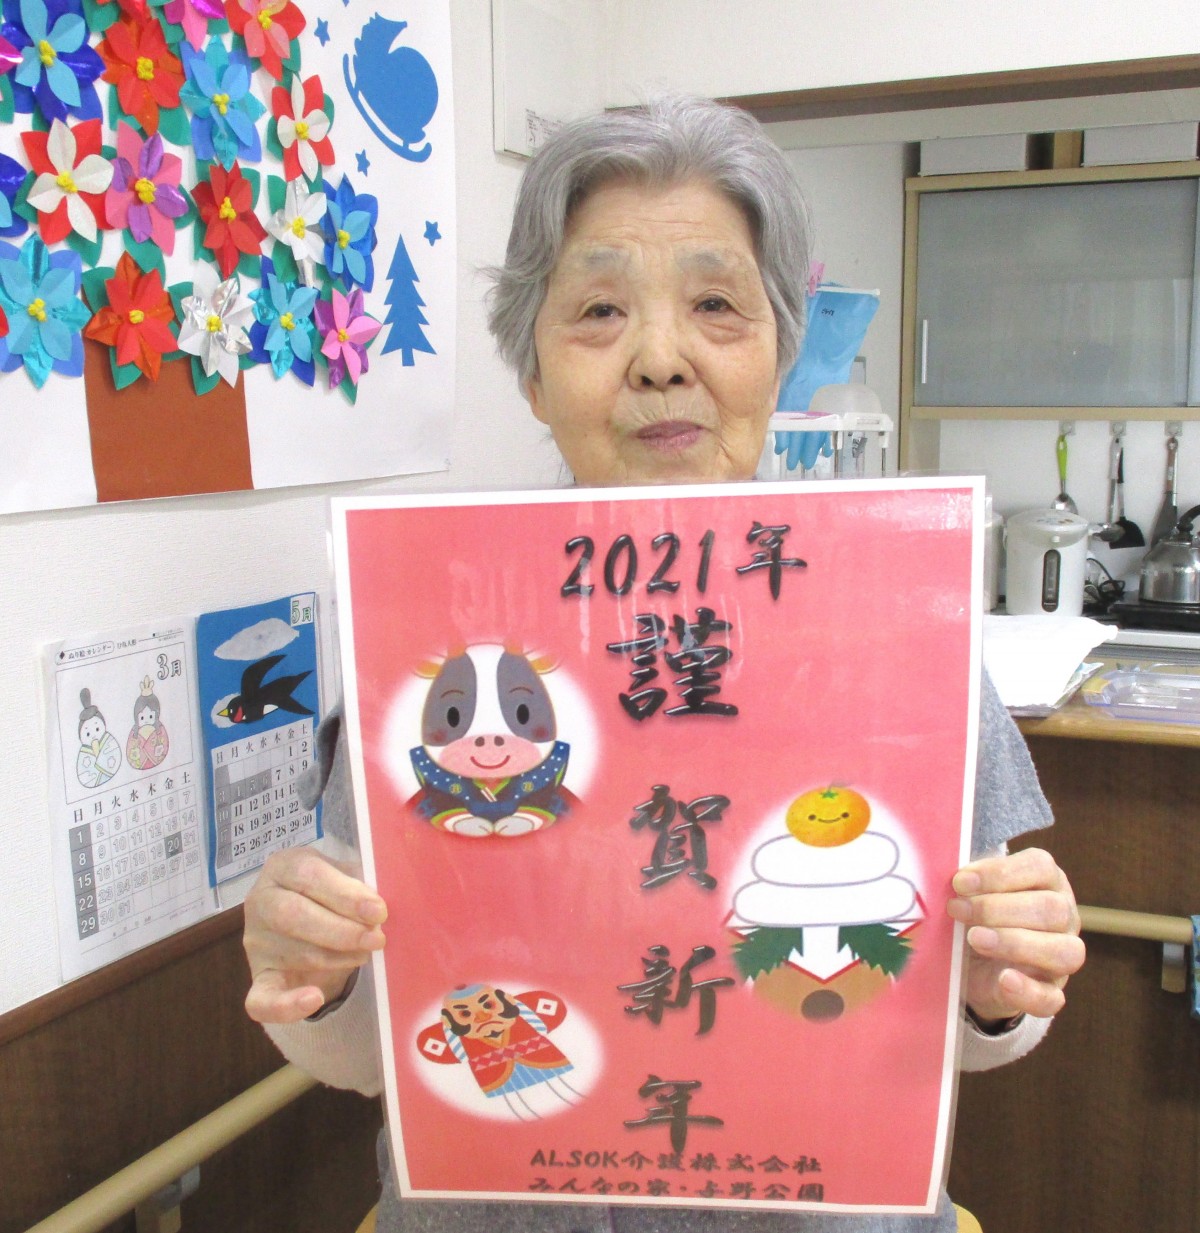 2021年
謹
賀
新
年
ALSOK介護株式会社
みんなの家・与野公園
ぬり絵カレンダー ひな人形
3月
日 月 火 水 木 金 土
1 2 3 4 5 6 7
8 9 10 11 12 13 14
15 16 17 18 19 20 21
22 23 24 25 26 27 28
29 30 31
5月
日 月 火 水 木 金 土
1 2
7 8 9
11 12 13 14
18 19 20 21 22
25 26 27 28 29 30